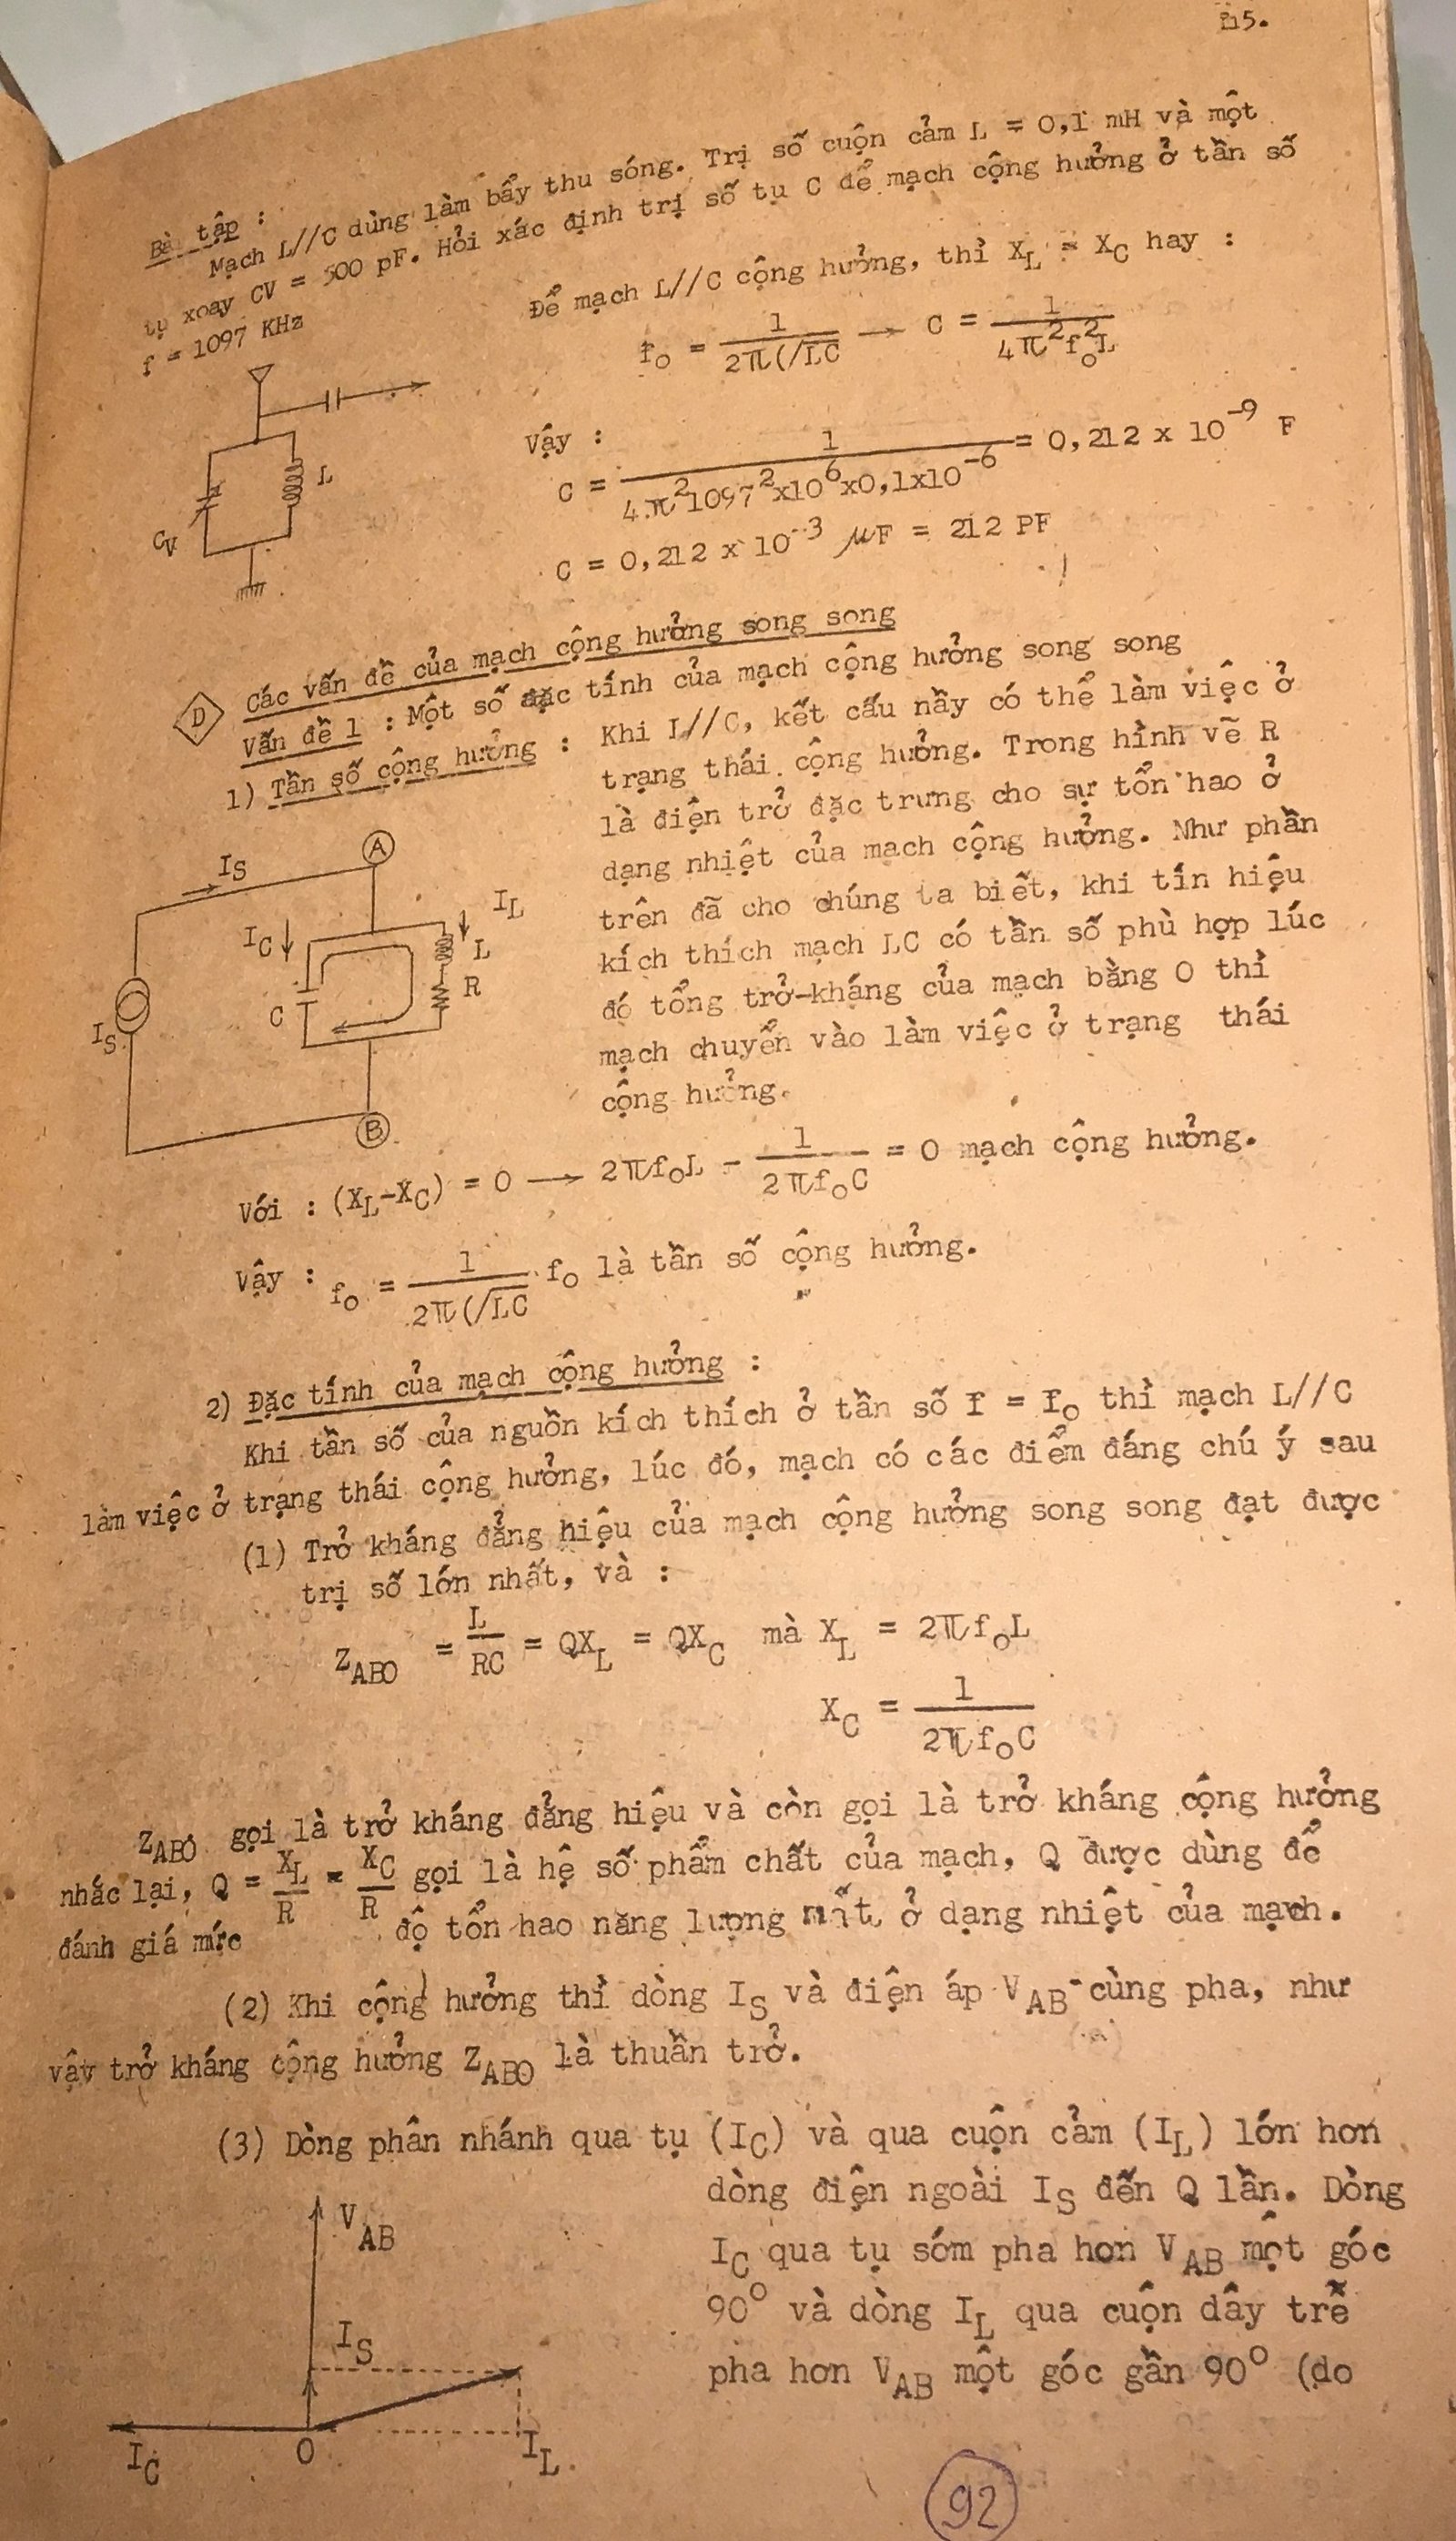 15.
Bài tập :
Mạch L//C dùng làm bẩy thu sóng. Trị số cuộn cảm L = 0,1 mH và một
tụ xoay CV = 500 pF. Hỏi xác định trị số tụ C để mạch cộng hưởng ở tần số
f = 1097 KHz
Để mạch L//C cộng hưởng, thì X_L = X_C hay :
f_o = 1 / 2π(/LC → C = 1 / 4π²f_o²L
L
C_V
Vậy :
C = 1 / 4π²1097²x10⁶x0,1x10⁻⁶ = 0,212 x 10⁻⁹ F
C = 0,212 x 10⁻³ μF = 212 PF
D Các vấn đề của mạch cộng hưởng song song
Vấn đề 1 : Một số đặc tính của mạch cộng hưởng song song
1) Tần số cộng hưởng : Khi L//C, kết cấu nầy có thể làm việc ở
trạng thái cộng hưởng. Trong hình vẽ R
là điện trở đặc trưng cho sự tổn hao ở
dạng nhiệt của mạch cộng hưởng. Như phần
trên đã cho chúng ta biết, khi tín hiệu
kích thích mạch LC có tần số phù hợp lúc
đó tổng trở-kháng của mạch bằng 0 thì
mạch chuyển vào làm việc ở trạng thái
cộng hưởng.
A
I_S
I_L
I_C
L
R
C
I_S
B
Với : (X_L-X_C) = 0 → 2πf_oL - 1 / 2πf_oC = 0 mạch cộng hưởng.
Vậy : f_o = 1 / 2π(/LC f_o là tần số cộng hưởng.
2) Đặc tính của mạch cộng hưởng :
Khi tần số của nguồn kích thích ở tần số f = f_o thì mạch L//C
làm việc ở trạng thái cộng hưởng, lúc đó, mạch có các điểm đáng chú ý sau
(1) Trở kháng đẳng hiệu của mạch cộng hưởng song song đạt được
trị số lớn nhất, và :
Z_ABO = L / RC = QX_L = QX_C mà X_L = 2πf_oL
X_C = 1 / 2πf_oC
Z_ABO gọi là trở kháng đẳng hiệu và còn gọi là trở kháng cộng hưởng
nhắc lại, Q = X_L / R = X_C / R gọi là hệ số phẩm chất của mạch, Q được dùng để
đánh giá mức độ tổn hao năng lượng mất ở dạng nhiệt của mạch.
(2) Khi cộng hưởng thì dòng I_S và điện áp V_AB cùng pha, như
vậy trở kháng cộng hưởng Z_ABO là thuần trở.
(3) Dòng phân nhánh qua tụ (I_C) và qua cuộn cảm (I_L) lớn hơn
dòng điện ngoài I_S đến Q lần. Dòng
I_C qua tụ sớm pha hơn V_AB một góc
90° và dòng I_L qua cuộn dây trễ
pha hơn V_AB một góc gần 90° (do
V_AB
I_S
I_C
O
I_L
92